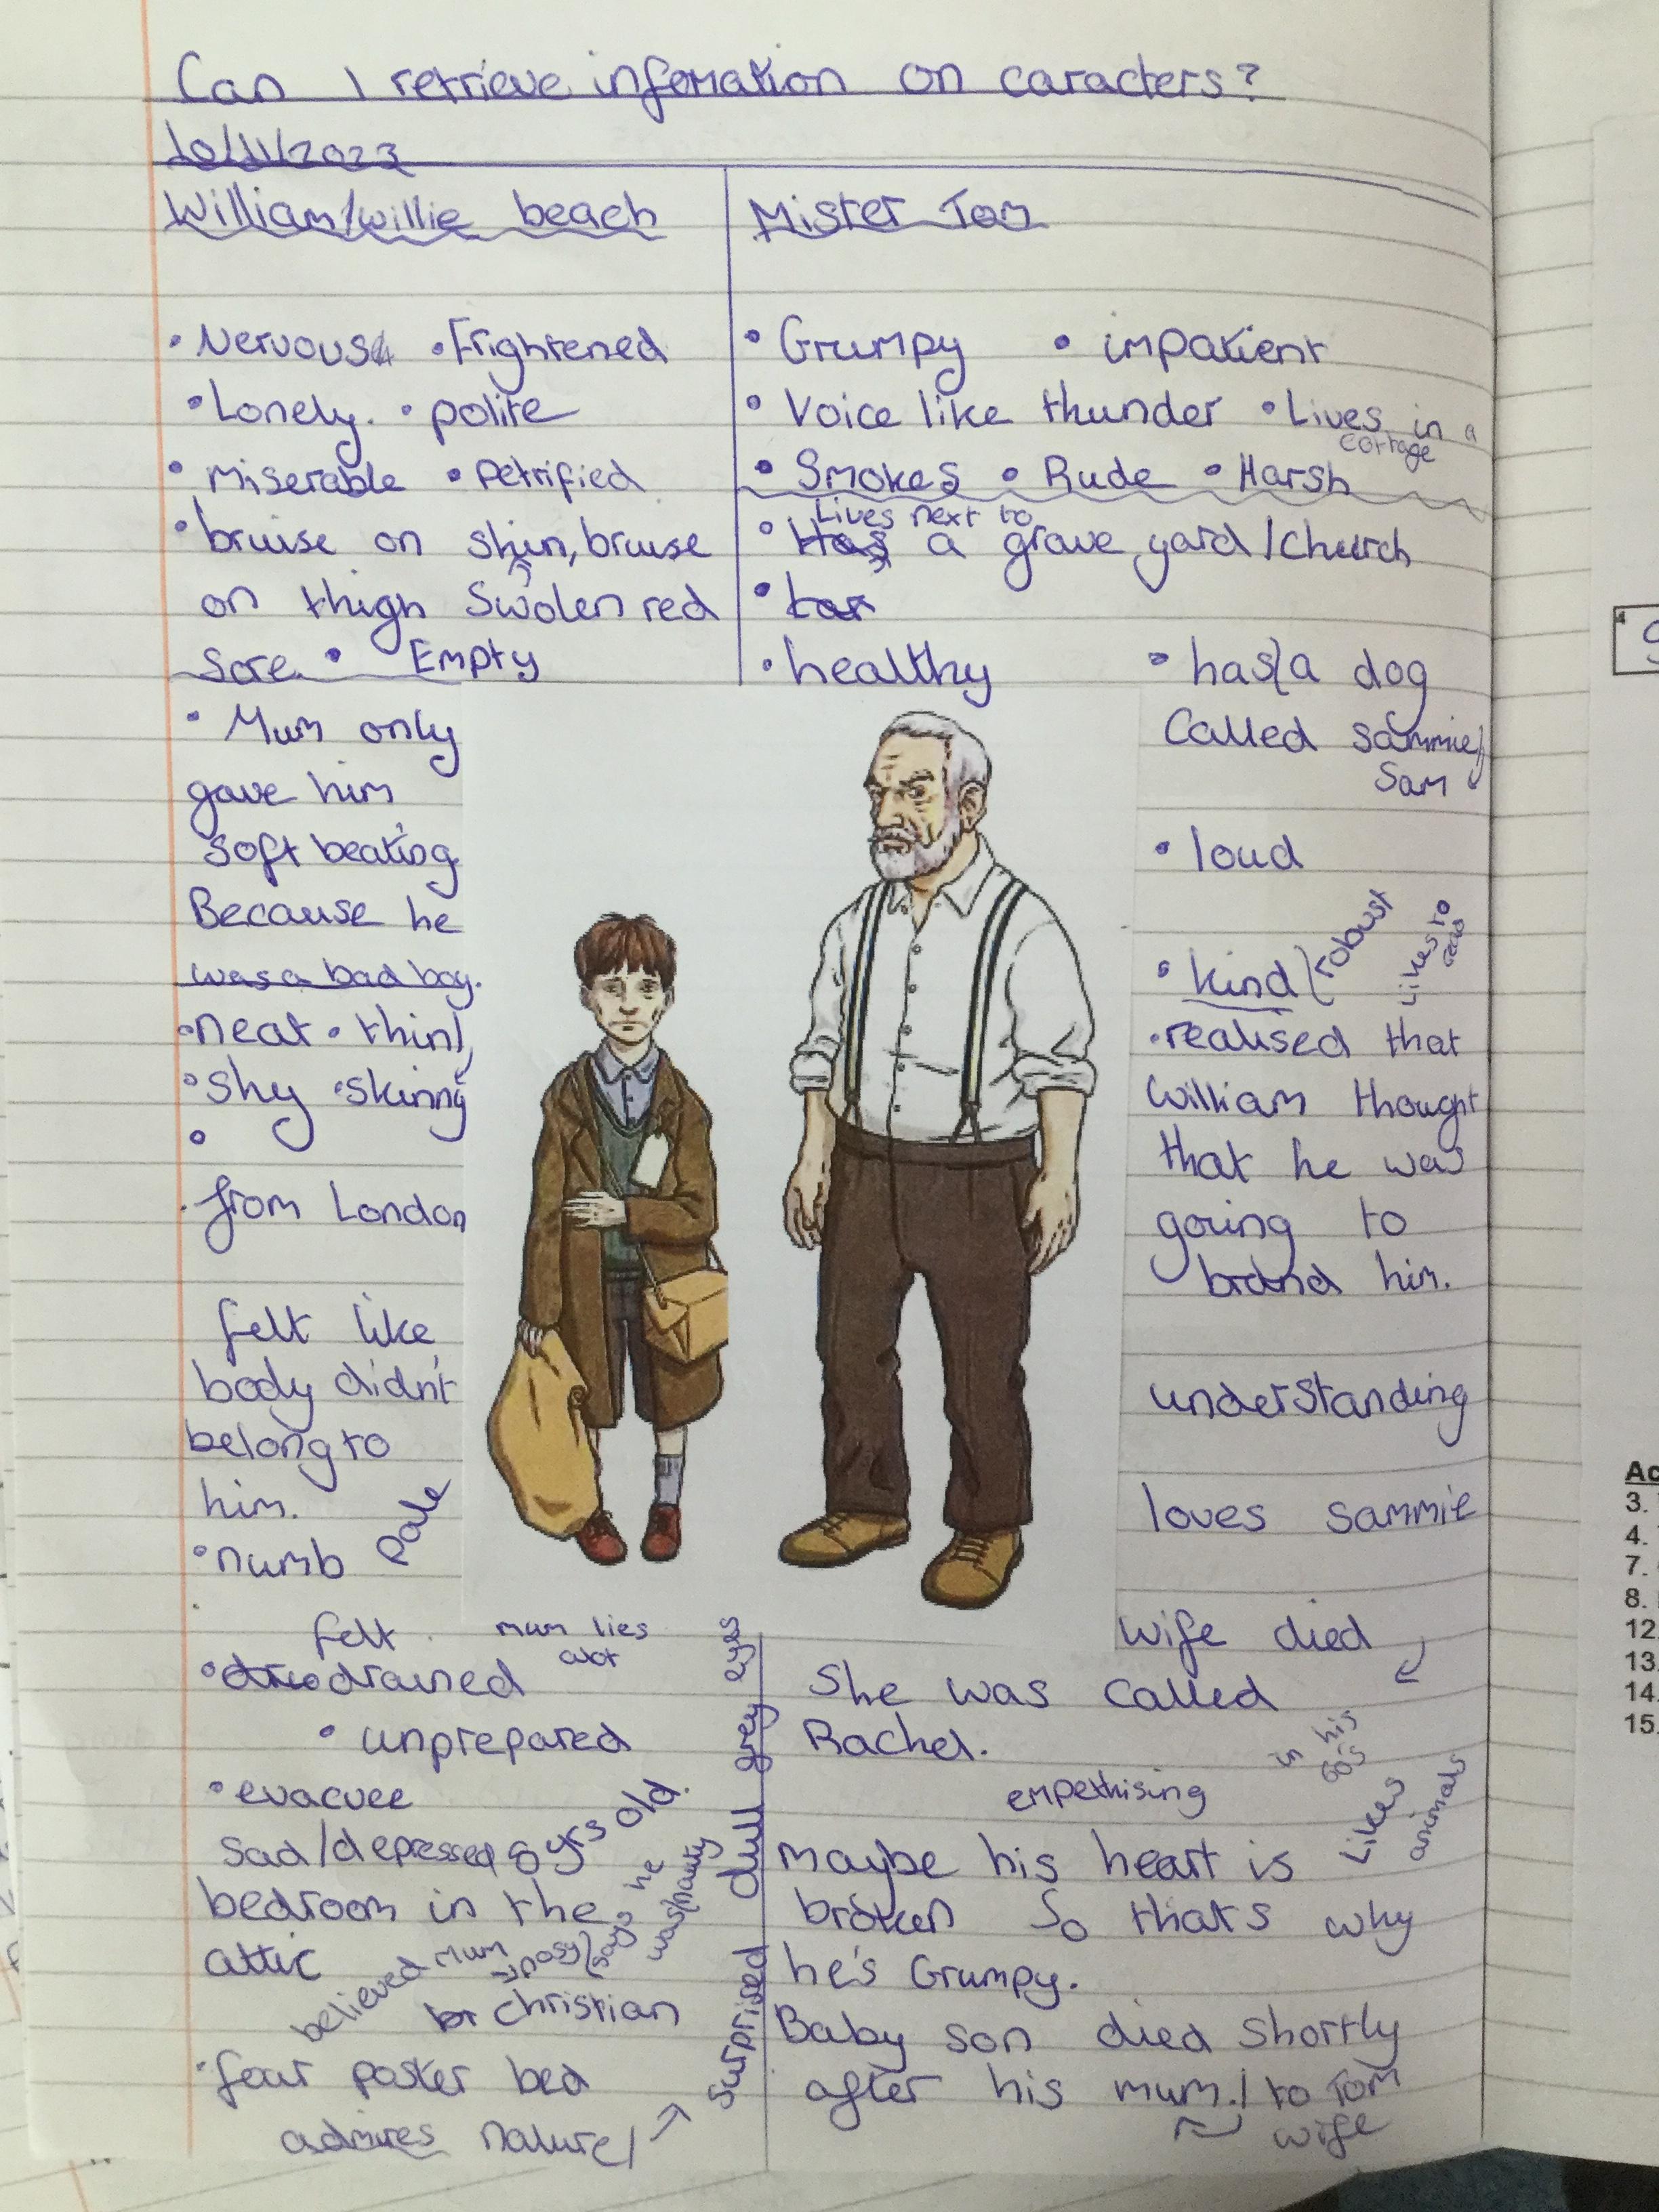 Can I retrieve infomation on caracters?
10/11/2023
William/willie beach
Nervous • Frightened
• Lonely. • polite
• miserable • Petrified
• bruise on shin, bruise
on thigh Swolen red
sore • Empty
• Mum only
gave him
soft beating
Because he
was a bad boy.
• neat • thin/
• shy • skinny
• from London
felt like
body didn't
belong to
him.
• numb pale
felt
• drained
mum lies
alot
• unprepared
• evacuee
sad/depressed 8 yrs old.
bedroom in the
attic
believed mum
says he
was
christian
• four poster bed
admires nature/ →
surprised
dull grey eyes
Mister Tom
• Grumpy • impatient
• Voice like thunder • Lives in a
cottage
• Smokes • Rude • Harsh
Lives next to
• Has a grave yard/Church
• healthy
• has/a dog
Called sammie/
Sam
• loud
• kind/robust
Likes to
• realised that
William thought
that he was
going to
brand him.
understanding
loves sammie
wife died
She was called
Rachel.
in his
60s
empethising
Likes
animals
maybe his heart is
broken So thats why
he's Grumpy.
Baby son died shortly
after his mum./to Tom
wife
Ac
3.
4.
7.
8.
12
13
14
15.